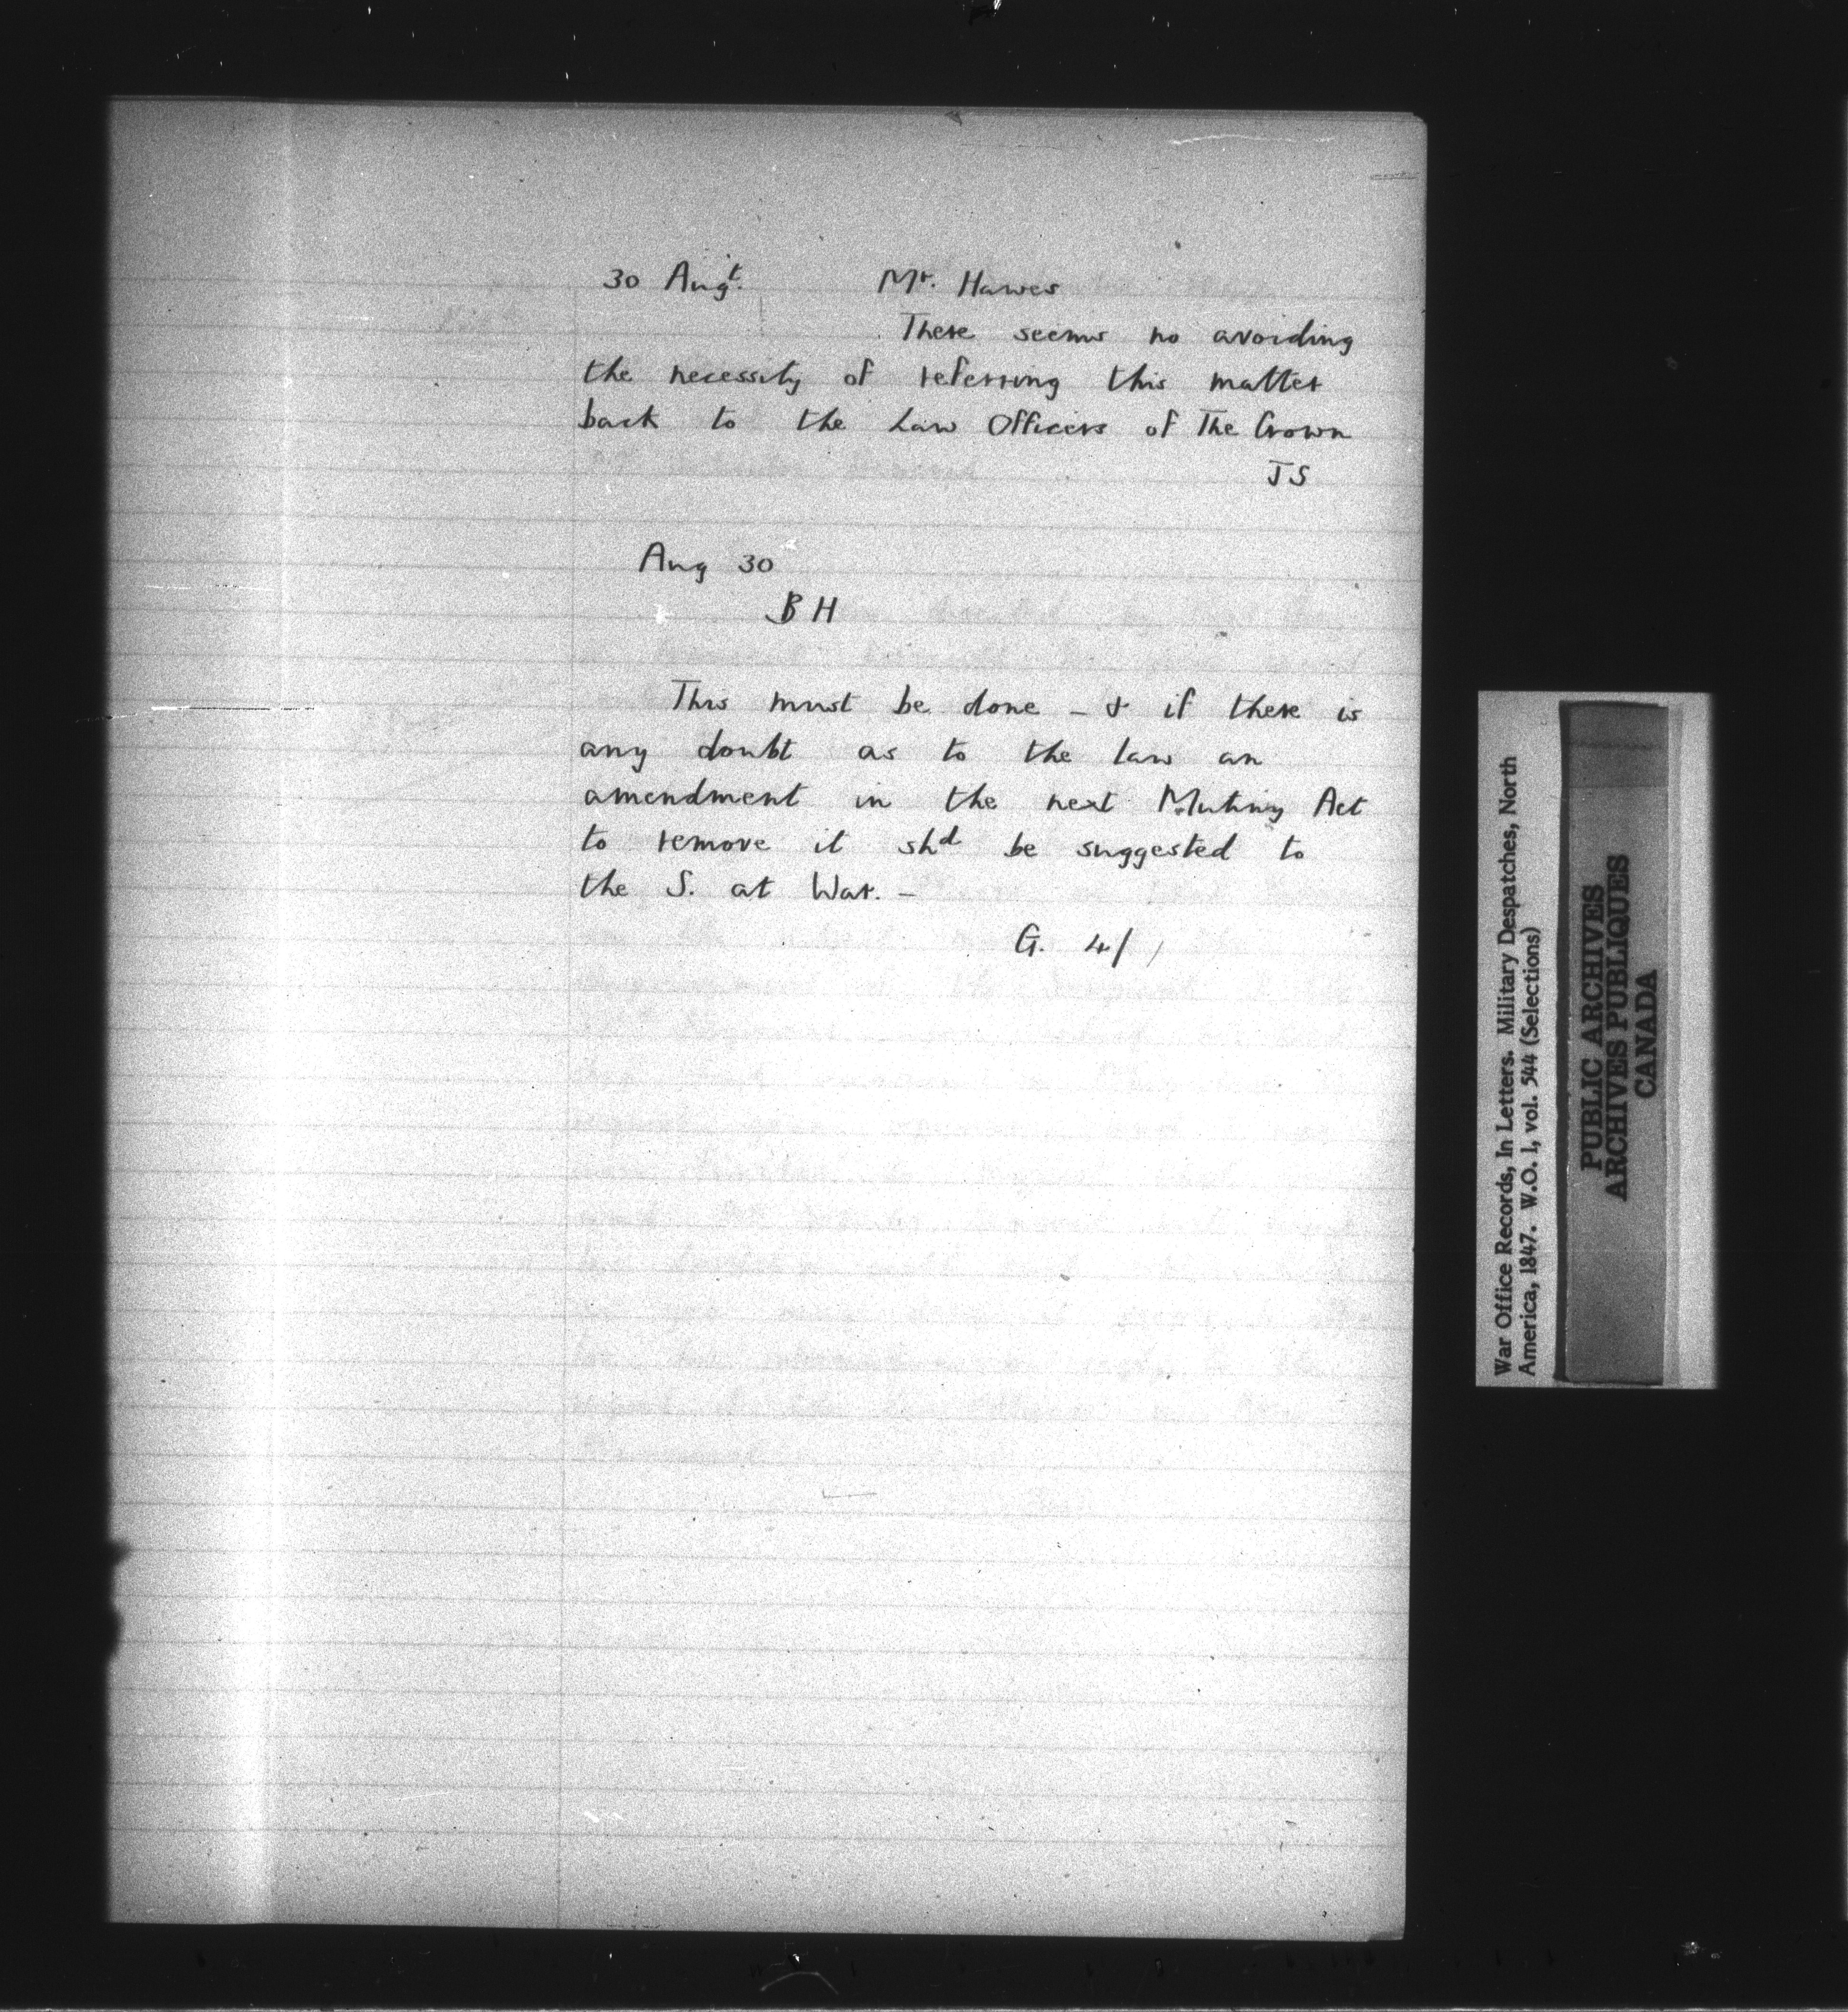 30 Augt. Mr. Hawes
There seems no avoiding
the necessity of referring this matter
back to the Law Officers of The Crown
JS
Aug 30
BH
This must be done - & if there is
any doubt as to the law an
amendment in the next Mutiny Act
to remove it shd be suggested to
the S. at War. -
G. 4/
War Office Records, In Letters. Military Despatches, North
America, 1847. W.O. 1, vol. 544 (Selections)
PUBLIC ARCHIVES
ARCHIVES PUBLIQUES
CANADA